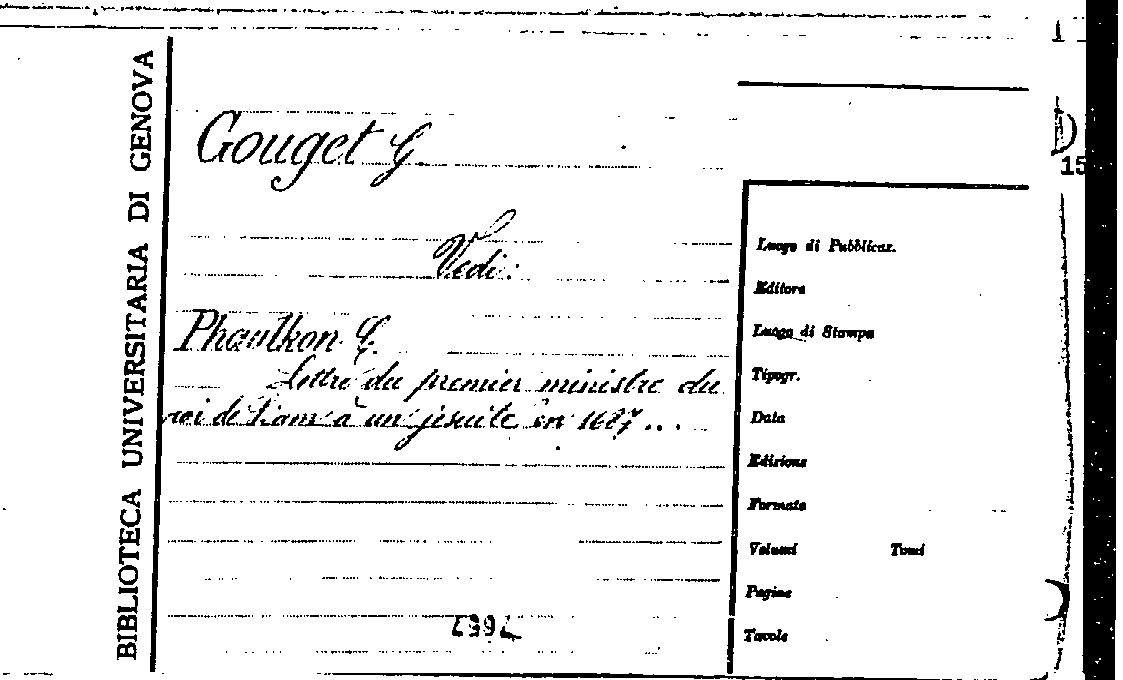 BIBLIOTECA UNIVERSITARIA DI GENOVA
Gouget G.
Vedi:
Phaulkon C.
Lettre du premier ministre du
roi de Siam à un jesuite en 1687...
Luogo di Pubblicaz.
Editore
Luogo di Stampa
Tipogr.
Data
Edizione
Formato
Volumi Tomi
Pagine
Tavole
15